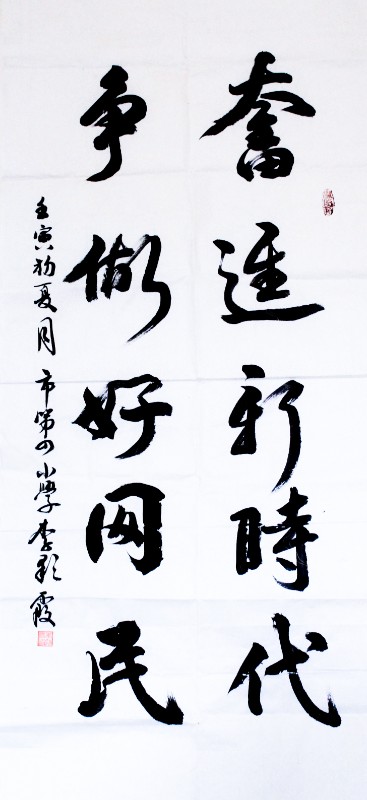 奮進新時代
争做好网民
壬寅初夏月 市第四小學 李彩霞